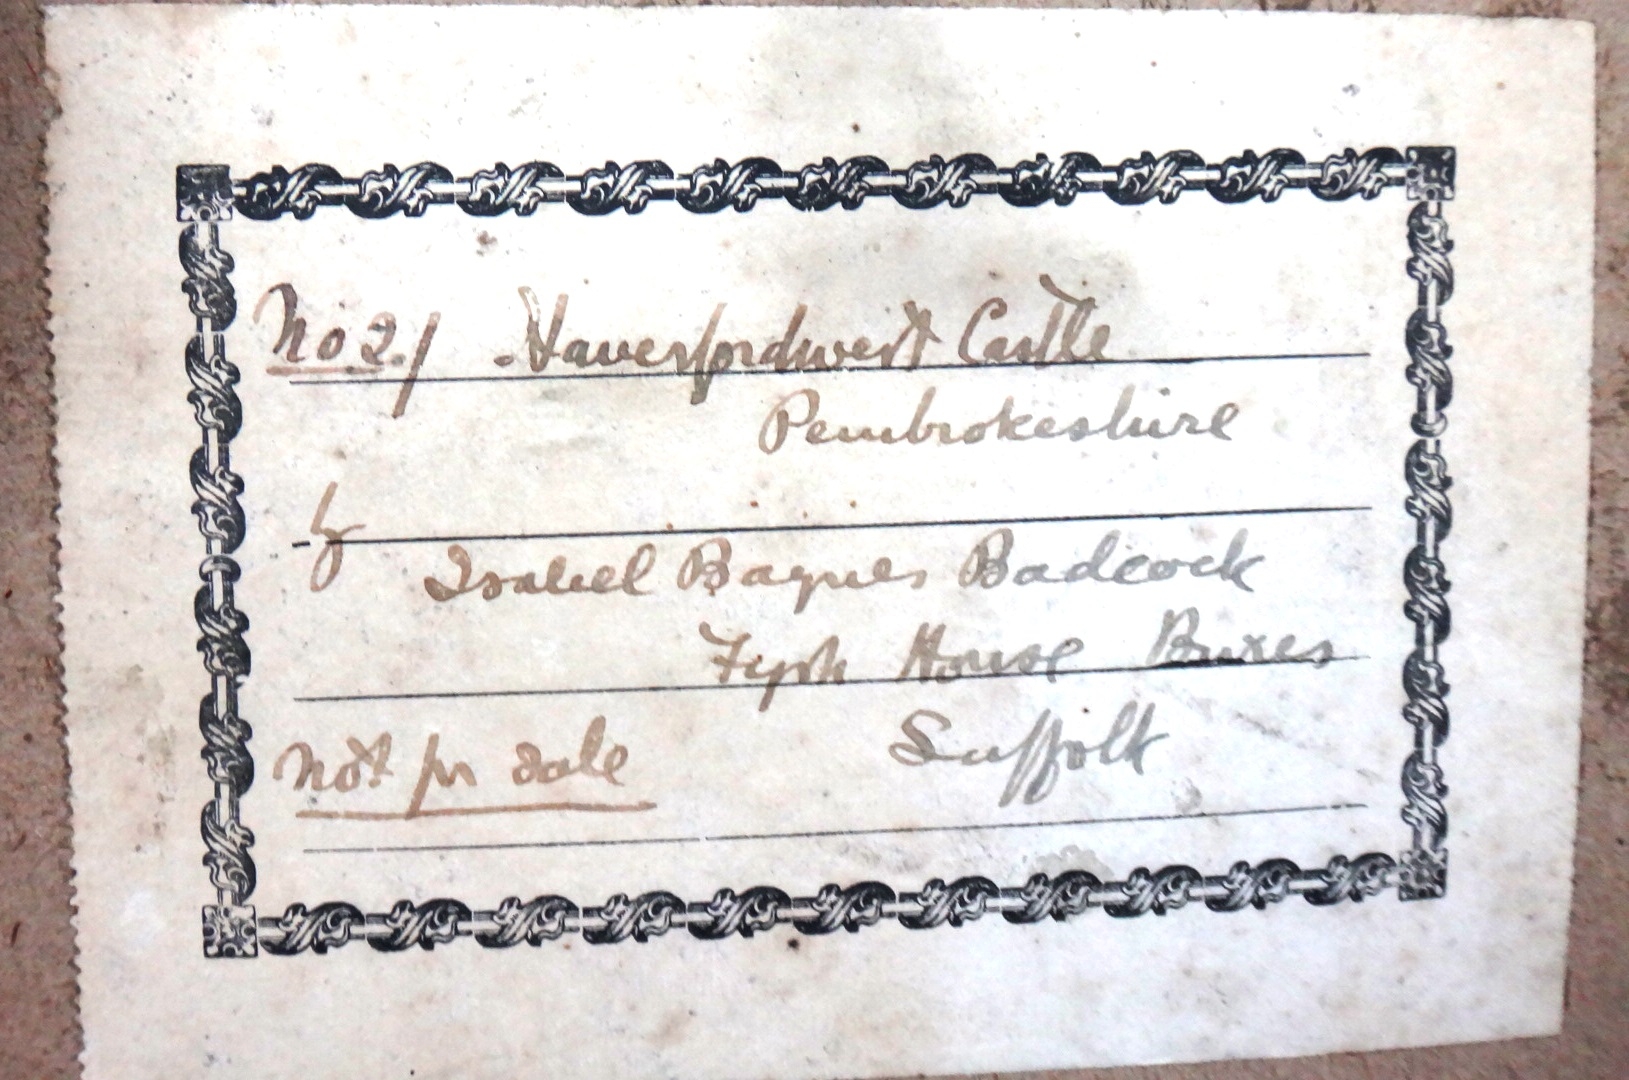 No 2. / Haverfordwest Castle
Pembrokeshire
by
Isabel Baynes Badcock
Fysh House Bures
Suffolk
Not for sale